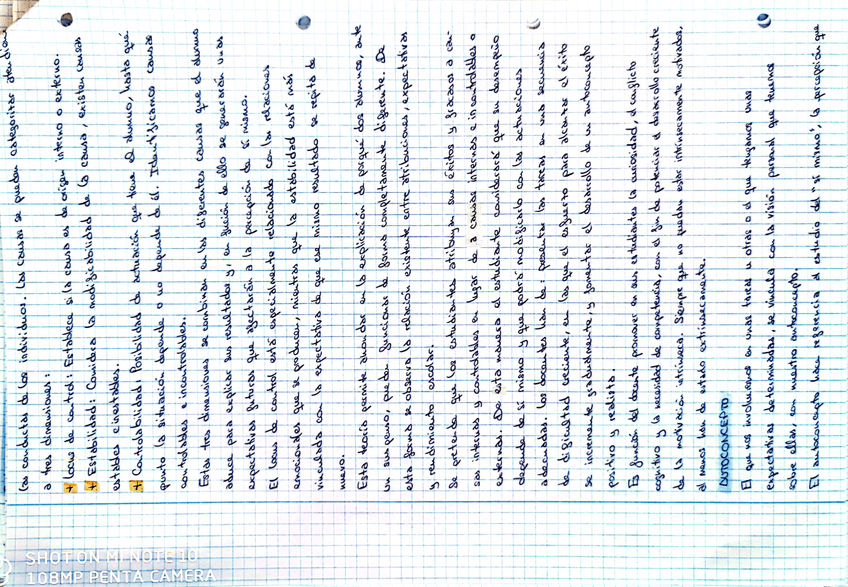 las conductas de los individuos. Las causas se pueden categorizar atendiendo
a tres dimensiones:
+ Locus de control: Establece si la causa es de origen interno o externo.
+ Estabilidad: Considera la modificabilidad de la causa, existen causas
estables e inestables.
+ Controlabilidad: Posibilidad de actuación que tiene el alumno, hasta qué
punto la situación depende o no depende de él. Identificamos causas
controlables e incontrolables.
Estas tres dimensiones se combinan en las diferentes causas que el alumno
aduce para explicar sus resultados y, en función de ello se generarán unas
expectativas futuras que afectarán a la percepción de sí mismo.
El locus de control está especialmente relacionado con las relaciones
emocionales que se producen, mientras que la estabilidad está más
vinculada con la expectativa de que ese mismo resultado se repita de
nuevo.
Esta teoría permite ahondar en la explicación de porqué dos alumnos, ante
un suspenso, puedan funcionar de forma completamente diferente. De
esta forma se observa la relación existente entre atribuciones, expectativas
y rendimiento escolar.
Se pretende que los estudiantes atribuyan sus éxitos y fracasos a cau-
sas internas y controlables en lugar de a causas internas e incontrolables o
externas. De esta manera el estudiante considerará que su desempeño
depende de sí mismo y que podrá modificarlo con las actuaciones
adecuadas. Los docentes han de: presentar las tareas en una secuencia
de dificultad creciente, en las que el esfuerzo para alcanzar el éxito
se incremente gradualmente, y fomentar el desarrollo de un autoconcepto
positivo y realista.
Es función del docente promover en sus estudiantes la curiosidad, el conflicto
cognitivo y la necesidad de competencia, con el fin de potenciar el desarrollo creciente
de la motivación intrínseca. Siempre que no puedan estar intrínsecamente motivados,
al menos han de estarlo extrínsecamente.
AUTOCONCEPTO
El que nos involucremos en unas tareas u otras o el que tengamos unas
expectativas determinadas, se vincula con la visión personal que tenemos
sobre ellas, con nuestro autoconcepto.
El autoconcepto hace referencia al estudio del "sí mismo", la percepción que
SHOT ON MI NOTE 10
108MP PENTA CAMERA